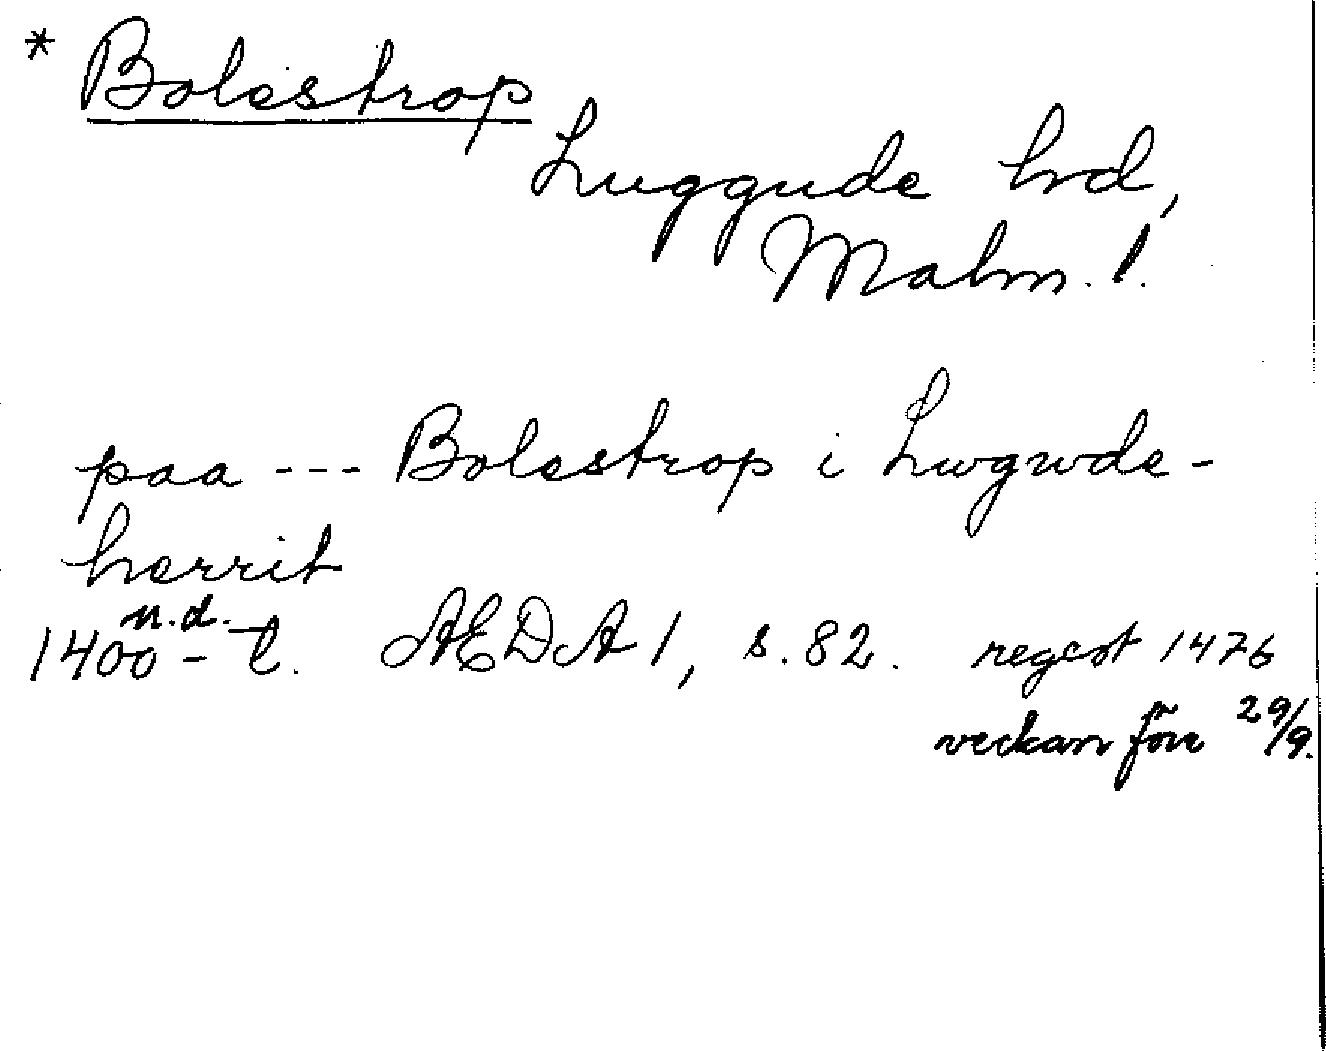 * Bolestrop
Luggude hd,
Malm. l.
paa --- Bolestrop i Lwgwde-
herrit
n.d.
1400-t. AEDA 1, s. 82. regest 1476
veckan före 29/9.